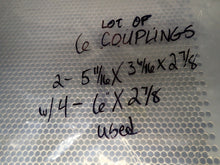 LOT OF
6 COUPLINGS
2- 5 11/16 X 3 4/16 X 2 7/8
w/ 4- 6 X 2 7/8
used